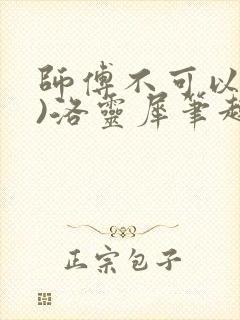 師傅不可以
)洛靈犀筆趣
正宗包子